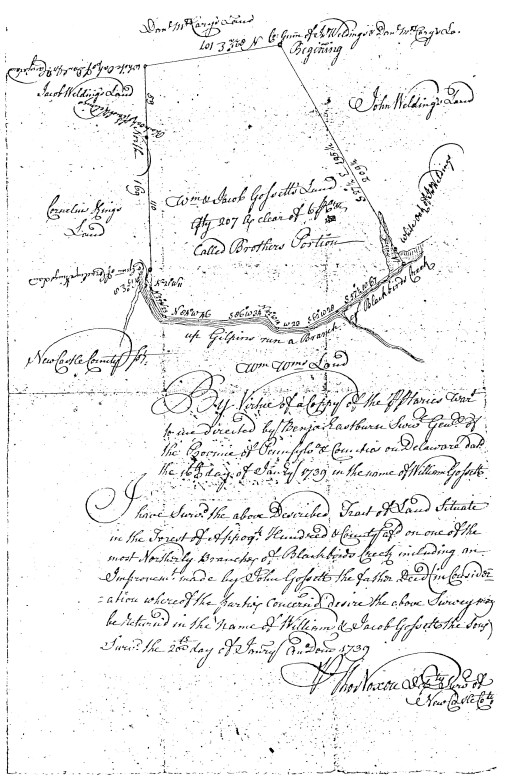 Danl McCarys Land
101 3/4 N
Gum of Jn Weldings & Danl McCary's La.
Begining
Jacob Weldings Land
John Weldings Land
North 169
110
S 7½ E 196½
209½
Wm & Jacob Gossetts Land
Qty 207 As clear of 6 p
Called Brothers Portion
Cornelius Kings
Land
New Castle County ss.
N 84 W 46
S 86 W 24
W 20
S 57½ W 67
up Gilpins run a Branch of Blackbirds Creek
Wm Wms Land
By Virtue of a Coppy of the Proprietaries Warrt
to me Directed by Benja Eastburn Survr Genl of
the Province of Pennsylva & Counties on Delaware datd
the 16th day of Janry 1739 in the name of William Gossett
I have Survd the above Described Tract of Land Situate
in the Forest of Appoqk Hundred & County afsd on one of the
most Northerly Branches of Blackbirds Creek including an
Improvemt made by John Gossett the father Decd in Consider
=ation whereof the Parties Concernd desire the above Survey may
be returnd in the Name of William & Jacob Gossett the Sons
Survd the 20th day of Janry Ano Dom 1739
P Thos Noxon Depty Survr of
New Castle Coty